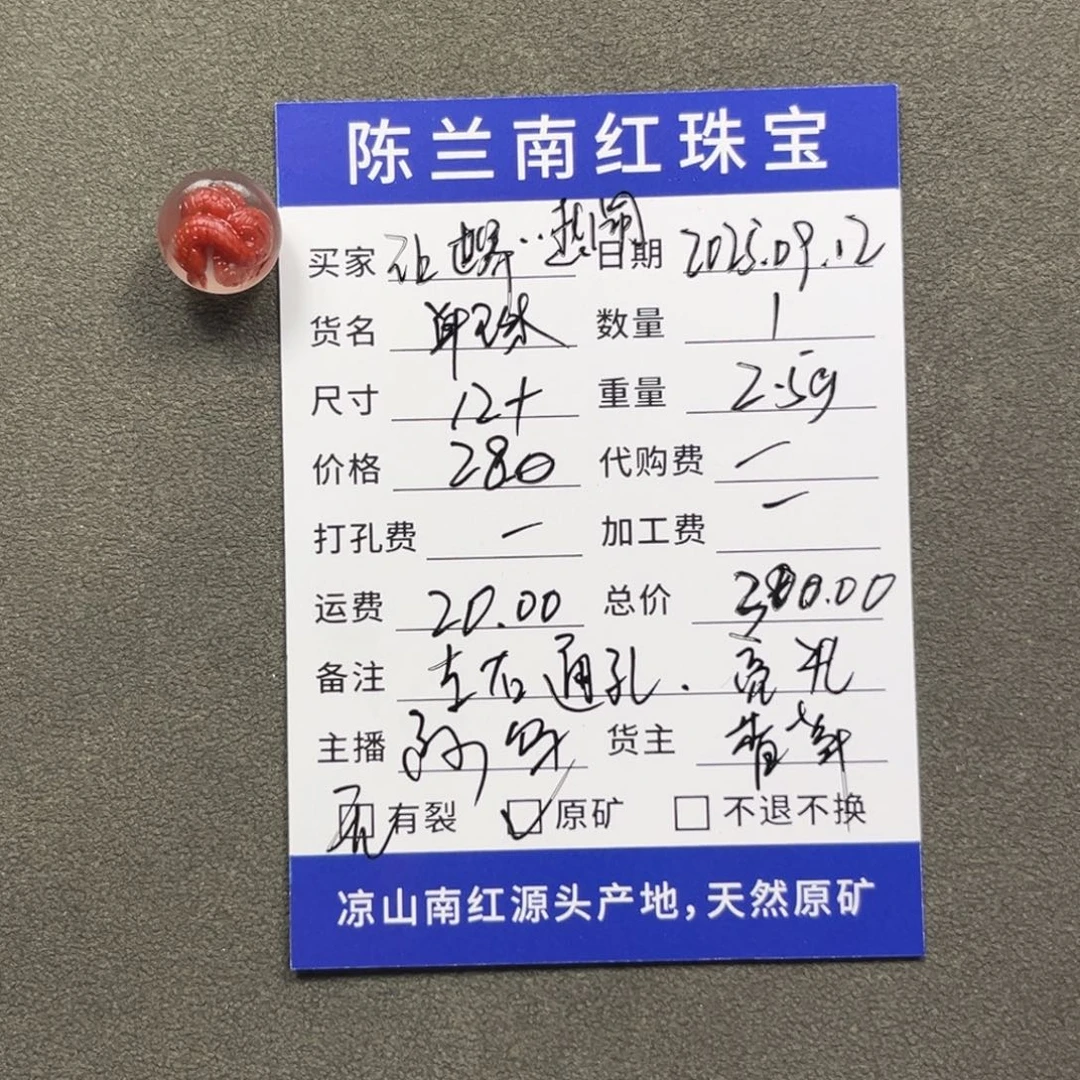 陈兰南红珠宝
买家 让世界..热闹 日期 2025.09.12
货名 单珠 数量 1
尺寸 12+ 重量 2.5g
价格 280 代购费 —
打孔费 — 加工费 —
运费 20.00 总价 300.00
备注 左右通孔.
主播 货主
无 有裂 ✓ 原矿 □ 不退不换
凉山南红源头产地,天然原矿